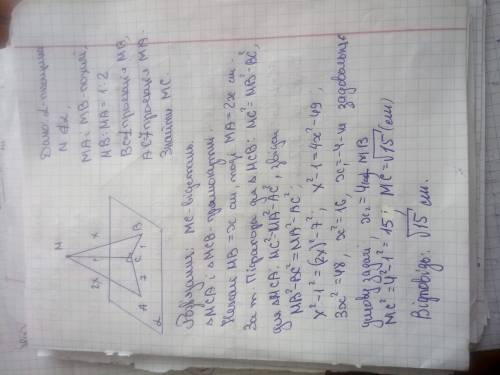 Дано: α-площина
M ∉ α,
MA і MB-похилі,
MB:MA = 1:2
BC проекція MB,
AC проекція MA.
Знайти MC.
M
2x
x
A
7
C
1
B
α
Розв'язання: MC-відстань.
△MCA і △MCB-прямокутні.
Нехай MB = x см, тоді MA = 2x см.
За т. Піфагора для △MCB: MC² = MB²-BC²,
для △MCA: MC²=MA²-AC², звідси
MB²-BC² = MA²-AC².
x²-1² = (2x)²-7², x²-1 = 4x²-49,
3x² = 48, x² = 16, x=-4-не задовольняє
умову задачі x₂ = 4 MB
MC² = 4²-1² = 15; MC = √15 (см)
Відповідь: √15 см.